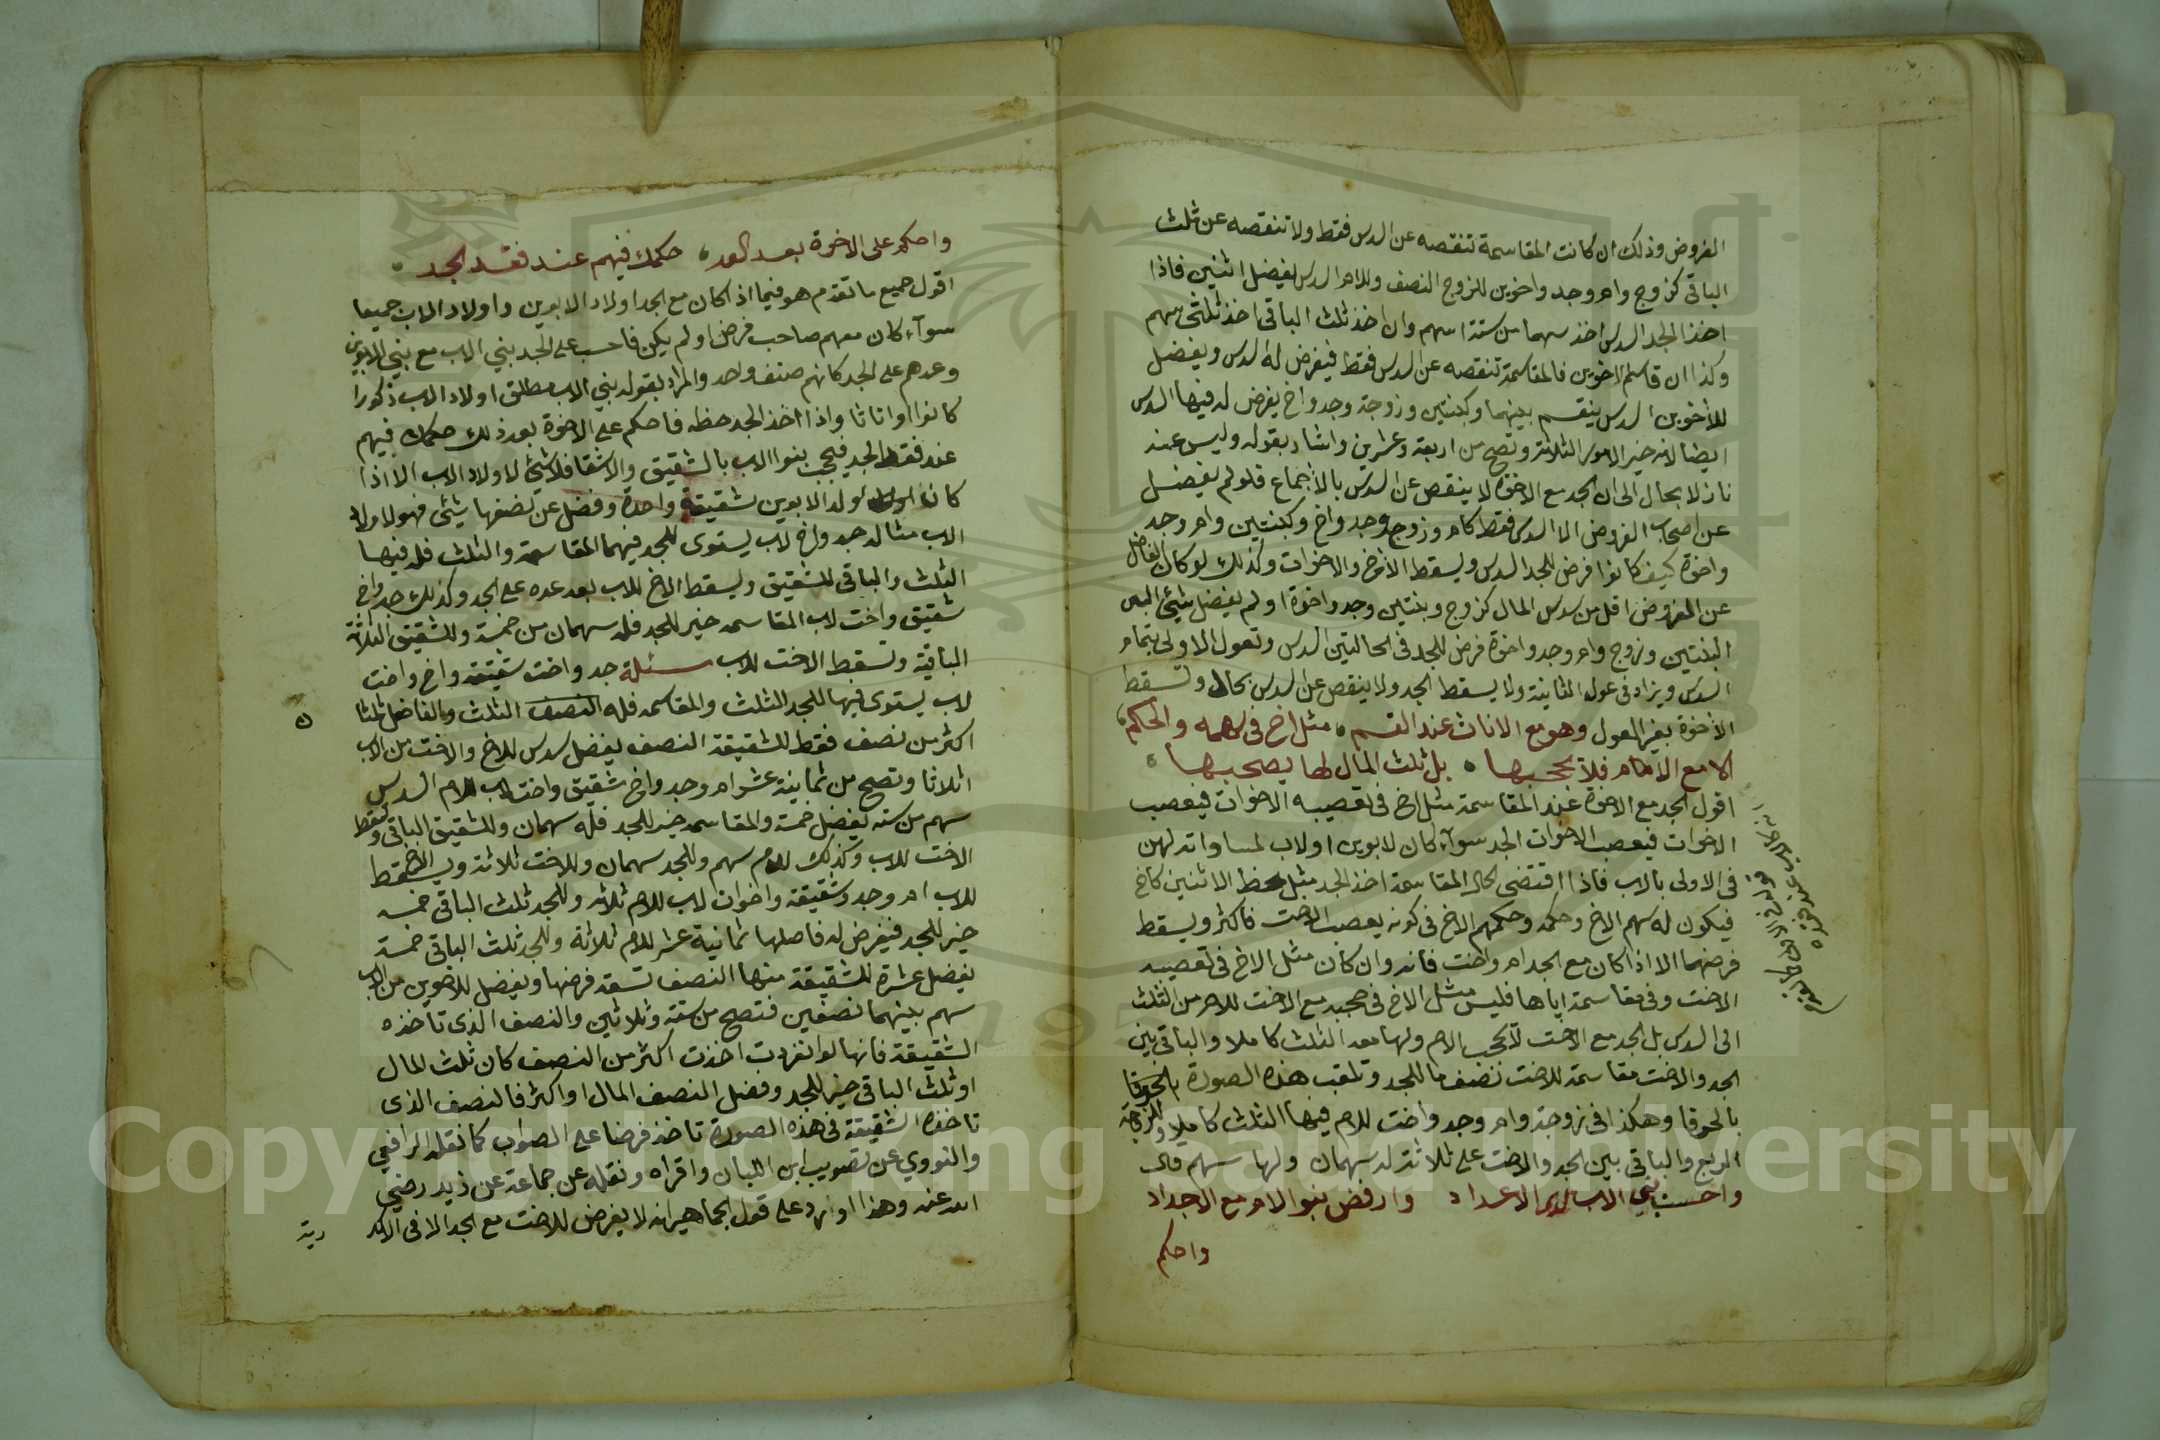 الفروض وذلك ان كانت المقاسمة تنقصه عن السدس فقط ولا تنقصه عن ثلث
الباقي كزوج وام وجد واخوين للزوج النصف وللام السدس يفضل اثنين فاذا
اخذ الجد السدس اخذ سهما من ستة اسهم وان اخذ ثلث الباقي اخذ ثلثي سهم
وكذا ان قاسم الاخوين فالمقاسمة تنقصه عن السدس فقط فيفرض له السدس ويفضل
للأخوين السدس ينقسم بينهما وكبنتين وزوجة وجد واخ يفرض له فيها السدس
ايضا لانه خير الامور الثلاثة وتصح من اربعة وعشرين واشار بقوله وليس عنه
نازلا بحال الى ان الجد مع الاخوة لا ينقص عن السدس بالاجماع فلو لم يفضل
عن اصحاب الفروض الا السدس فقط كام وزوج وجد واخ وكبنتين وام وجد
واخوة كيف كانوا فرض للجد السدس ويسقط الأخ والاخوات وكذلك لو كان الفاضل
عن الفروض اقل من سدس المال كزوج وبنتين وجد واخوة او لم يفضل شيئ
البنتين وزوج وام وجد واخوة فرض للجد في الحالتين السدس وتعول الاولى بتمام
السدس ويزاد في عول الثانية ولا يسقط الجد ولا ينقص عن السدس بحال وتسقط
الأخوة بغير العول وهو مع الاناث عند القسم مثل اخ في سهمه والحكم
الا مع الام فلا يحجبها بل ثلث المال لها يصحبها
اقول الجد مع الاخوة عند المقاسمة مثل اخ في تعصيبه الاخوات فيعصب
الاخوات فيعصب الاخوات الجد سوآء كان لابوين او لاب لمساواته لهن
في الاولى بالاب فاذا اقتضى الحال المقاسمة اخذ الجد مثل حظ الاثنين كاخ
فيكون له سهم الاخ وحكمه وحكمهم الاخ في كونه يعصب الاخت فاكثر ويسقط
فرضهما الا اذا كان مع الجد ام واخت فانه وان كان مثل الاخ في تعصيبه
الاخت وفي مقاسمة اياها فليس مثل الاخ في حجبه مع الاخت للام من الثلث
الى السدس بل الجد مع الاخت لا يحجب الام ولها معه الثلث كاملا والباقي بين
الجد والاخت مقاسمة للاخت نصف ما للجد وتلقب هذه الصورة بالخرقا
بالخرقا وهكذا في زوجة وام وجد واخت للام فيها الثلث كاملا وللزوجة
الربع والباقي بين الجد والاخت على ثلاثة له سهمان ولها سهم قال
واحسب بني الاب لدى الاعداد وارفض بنو الام مع الاجداد
واحكم
واحكم على الاخوة بعد العد حكمك فيهم عند فقد الجد
اقول جميع ما تقدم هو فيما اذا كان مع الجد اولاد الابوين واولاد الاب جميعا
سوآء كان معهم صاحب فرض او لم يكن فاحسب على الجد بني الاب مع بني الابوين
وعدهم على الجد كانهم صنف واحد والمراد بقوله بني الاب مطلق اولاد الاب ذكورا
كانوا او اناثا واذا اخذ الجد حظه فاحكم على الاخوة بعد ذلك حكمك فيهم
عند فقد الجد فيحجب بنوا الاب بالشقيق والاشقا فلا شيئ لاولاد الاب الا اذا
كان ولد الابوين شقيقة واحدة وفضل عن نصفها شيئ فهو لاولاد
الاب مثاله جد واخ لاب يستوى للجد فيهما المقاسمة والثلث فله فيها
الثلث والباقي للشقيق ويسقط الاخ للاب بعد عده على الجد وكذلك جد واخ
شقيق واخت لاب المقاسمه خير للجد فله سهمان من خمسة وللشقيق الثلاثة
الباقية وتسقط الاخت للاب مسئلة جد واخت شقيقة واخ واخت
لاب يستوى فيها للجد الثلث والمقاسمه فله النصف الثلث والفاضل ثلثا
اكثر من نصف فقط للشقيقة النصف يفضل سدس للاخ والاخت من الاب
اثلاثا وتصح من ثمانية عشر ام وجد واخ شقيق واخت لاب للام السدس
سهم من سته يفضل خمسة والمقاسمه خير للجد فله سهمان وللشقيق الباقي وتسقط
الاخت للاب وكذلك للام سهم وللجد سهمان وللاخت ثلاثة ويسقط الاخ
للاب ام وجد وشقيقة واخوان لاب للام ثلاثه وللجد ثلث الباقي خمسه
خير للجد فيفرض له فاصلها ثمانية عشر للام ثلاثة وللجد ثلث الباقي خمسة
يفضل عشرة للشقيقة منها النصف تسعة فرضها ويفضل للاخوين من الاب
سهم بينهما نصفين فتصح من ستة وثلاثين والنصف الذى تاخذه
الشقيقة فانها لو انفردت اخذت اكثر من النصف كان ثلث المال
او ثلث الباقي خير للجد وفضل النصف المال او اكثر فالنصف الذى
تاخذه الشقيقة في هذه الصورة تاخذ فرضا على الصواب كما نقله الرافعي
والنووي عن تصويب ابن اللبان واقراه ونقله عن جماعة عن زيد رضي
الله عنه وهذا اورد على قول الجماهير انه لا يفرض للاخت مع الجد الا في الاكد
رية